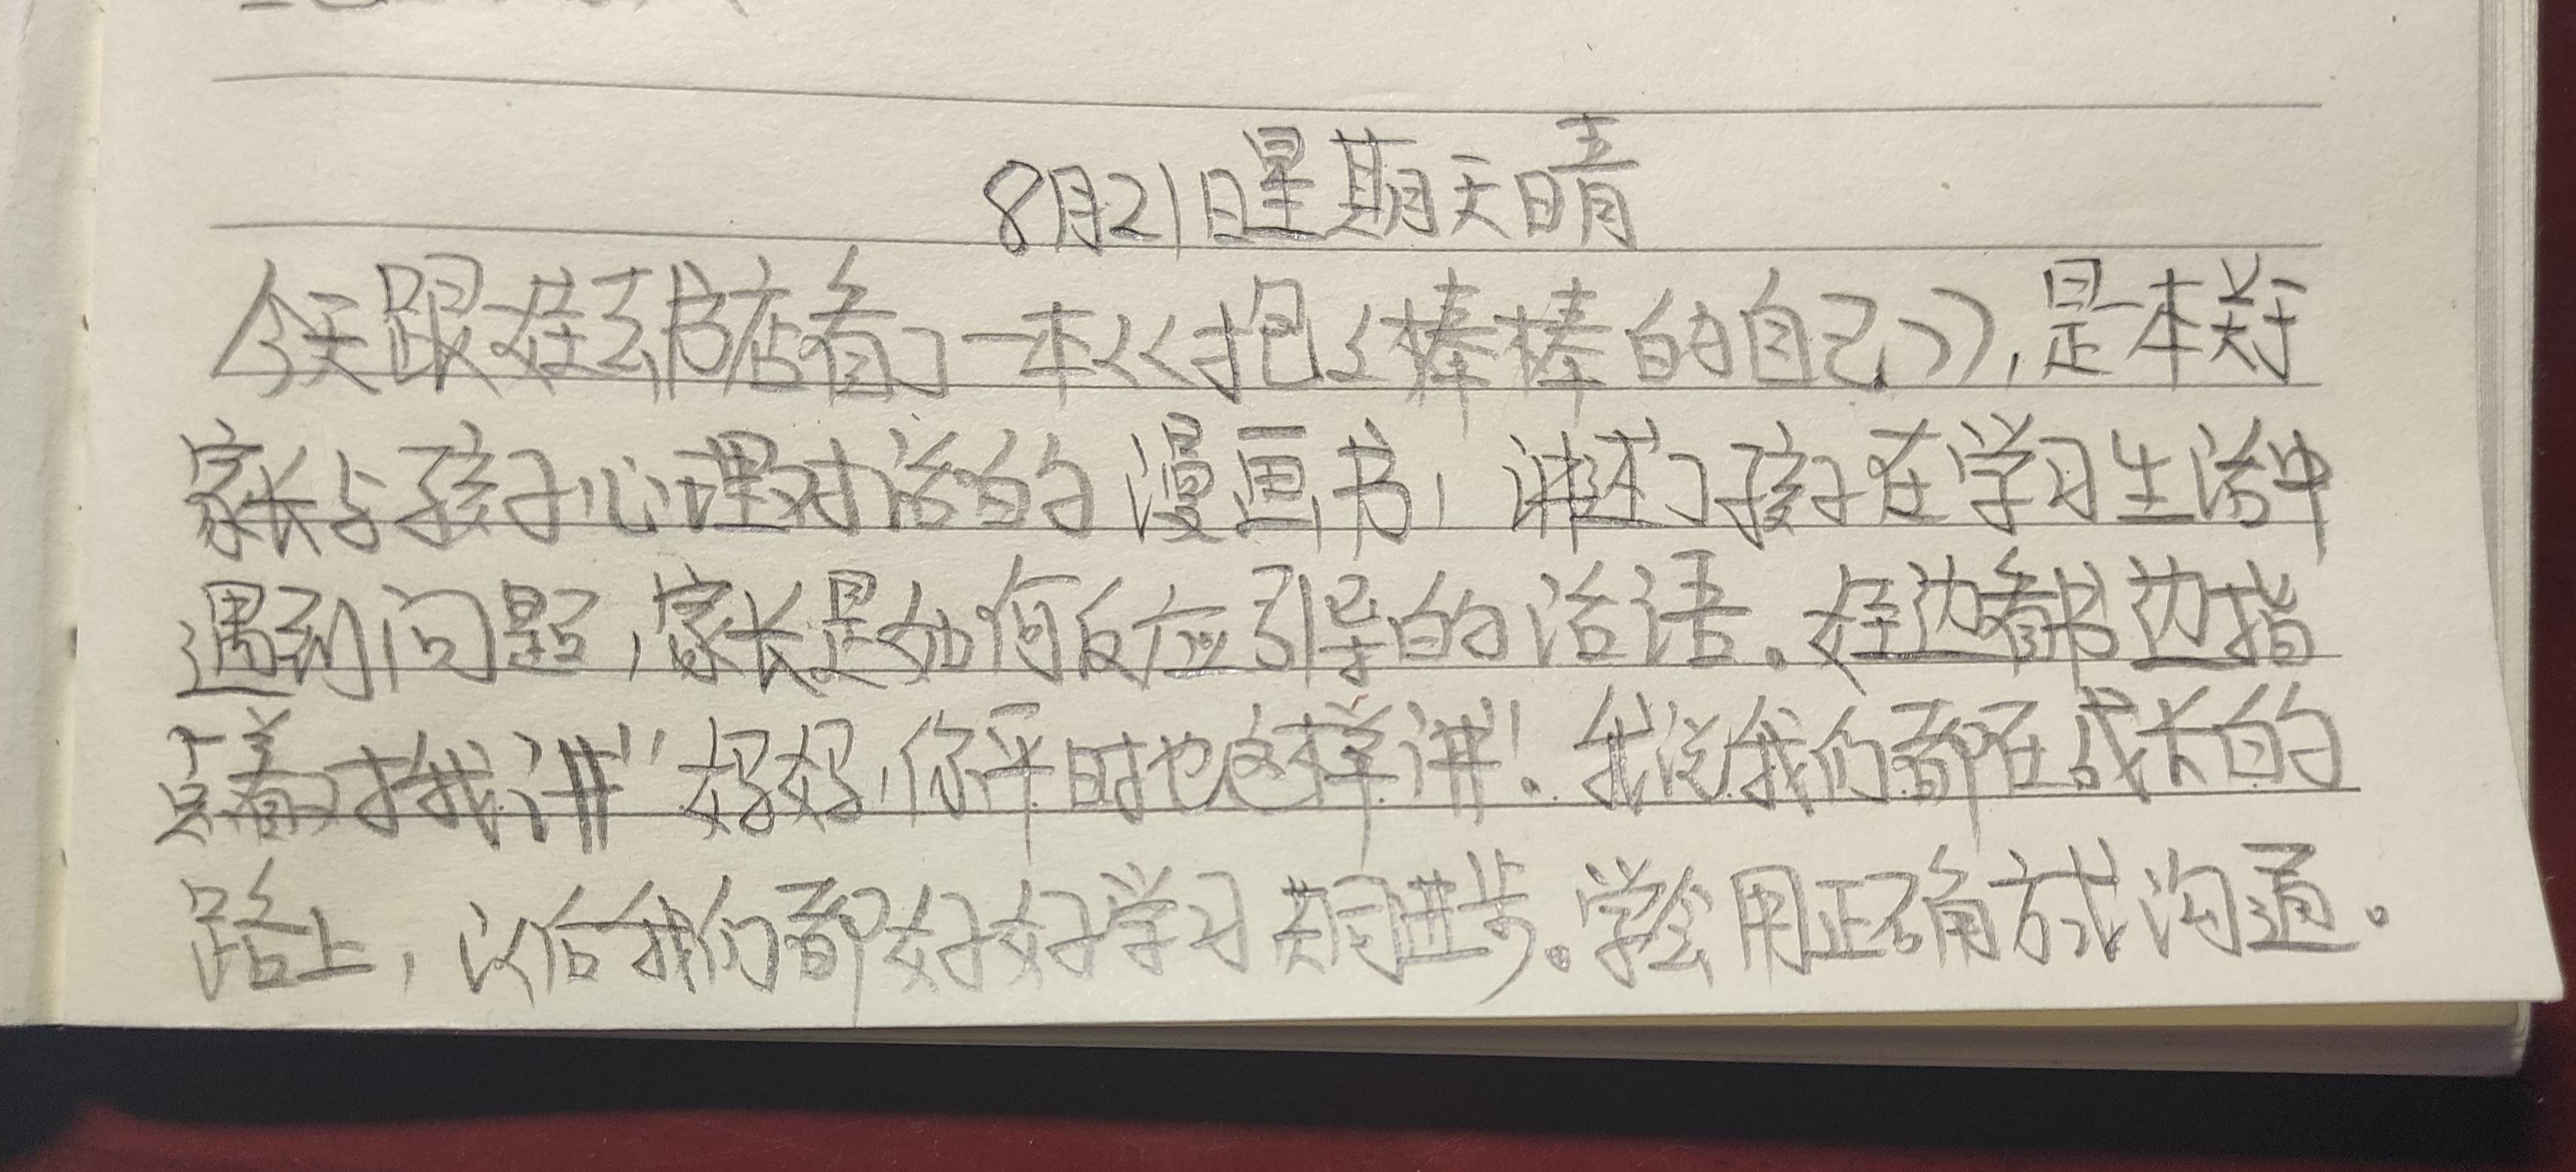 8月21日星期天晴
今天跟娃去书店看了一本《抱抱棒棒的自己》,是本关于
家长与孩子心理对话的漫画书,讲述了孩子在学习生活中
遇到问题,家长是如何反应引导的话语。娃边看书边指
着对我讲"妈妈,你平时也这样讲!我说我们都在成长的
路上,以后我们都好好学习共同进步。学会用正确方式沟通。